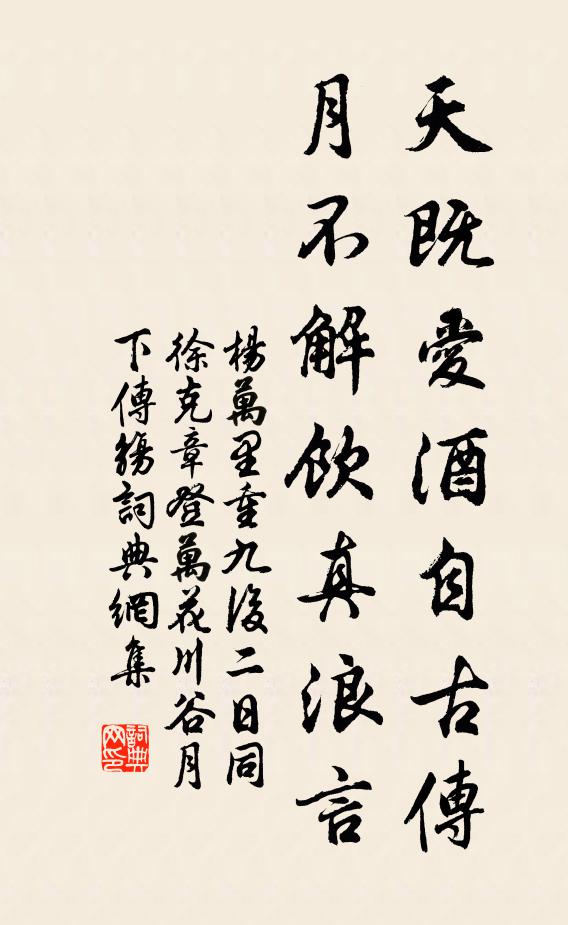 天既愛酒自古傳
月不解飲真浪言
楊萬里重九後二日同
徐克章登萬花川谷月
下傳觴詞典網集
詞典
网印